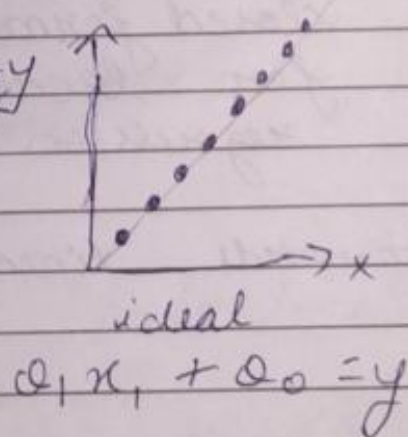 y
x
ideal
θ₁x₁ + θ₀ = y